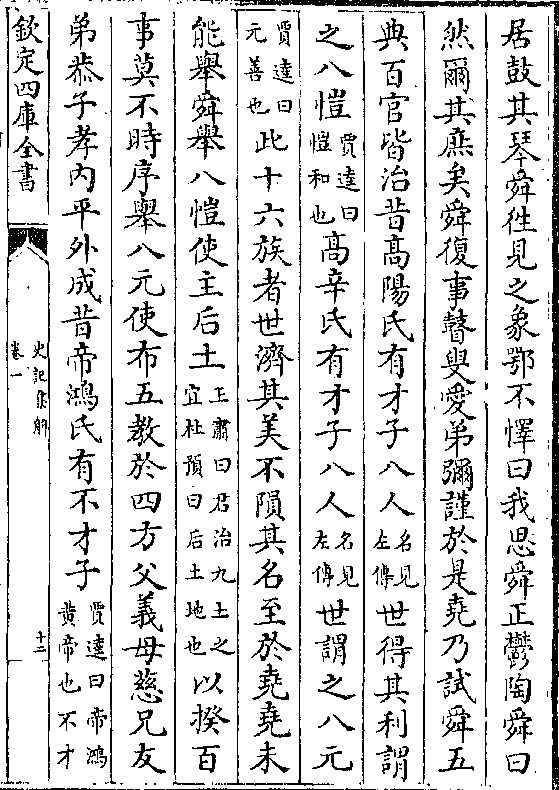 居鼓其琴舜徃見之象鄂不懌曰我思舜正鬱陶舜曰
然爾其庶矣舜復事瞽叟愛弟彌謹於是堯乃試舜五
典百官皆治昔髙陽氏有才子八人名見左傳世得其利謂
之八愷賈逵曰愷和也髙辛氏有才子八人名見左傳世謂之八元
賈逵曰元善也此十六族者世濟其美不隕其名至於堯堯未
能舉舜舉八愷使主后土王肅曰君治九土之宜杜預曰后土地也以揆百
事莫不時序舉八元使布五教於四方父義母慈兄友
弟恭子孝内平外成昔帝鴻氏有不才子賈逵曰帝鴻黄帝也不才
欽定四庫全書
史記集解
卷一
十二